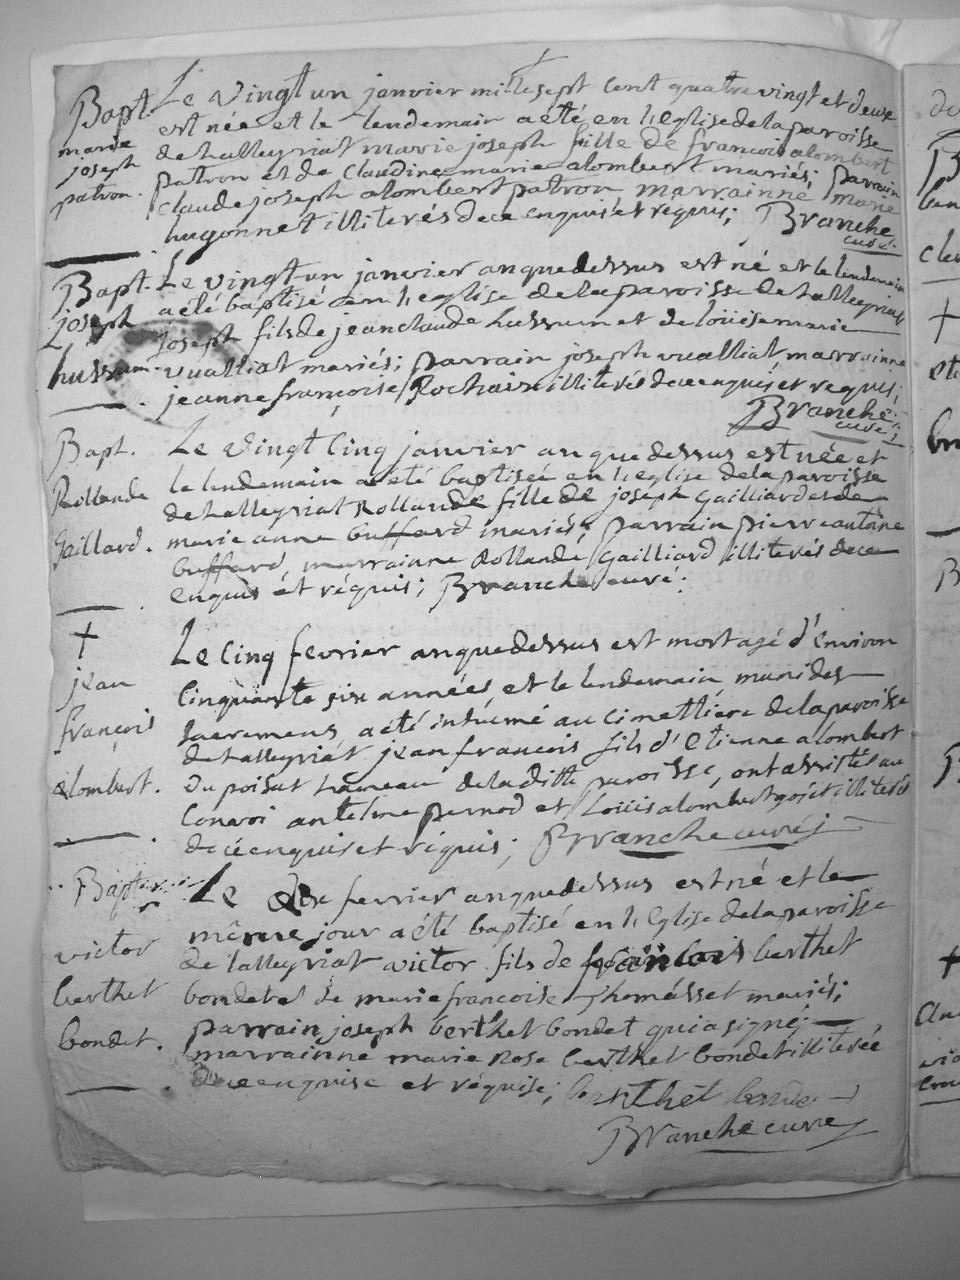 Bapt. Le vingt un janvier mille sept cent quatre vingt et deux
marie est née et le lendemain a été en l'eglise de la paroisse
joseph de talleyriat marie joseph fille de francois alombert
patron. patron et de Claudine marie alombert mariés; parrain
Claude joseph alombert patron marrainne marie
hugonnet illiterés de ce enquis et réquis; Branche
curé.
Bapt. Le vingt un janvier an que dessus est né et le lendemain
joseph a été baptisé en l'eglise de la paroisse de talleyriat
joseph fils de jean claude hussun et de loüise marie
hussun vualliat mariés; parrain joseph vualliat marrainne
jeanne françoise Rochaix illiterés de ce enquis et requis;
Branche
curé
Bapt. Le vingt Cinq janvier an que dessus est née et
Rollande le lendemain a été baptisée en l'eglise de la paroisse
de talleyriat Rollande fille de joseph Gailliard et de
Gaillard. marie anne buffard mariés; parrain pierre antoine
buffard, marrainne Rollande Gailliard illiterés de ce
enquis et réquis; Branche curé.
+ Le Cinq fevrier an que dessus est mort agé d'Environ
jean Cinquante six années et le lendemain muni des
françois sacremens a été inhumé au cimettiere de la paroisse
de talleyriat jean francois fils d'Etienne alombert
alombert. du poisat hameau de la ditte paroisse, ont assistés au
Convoi antelme pernod et Loüis alombert gojet illiterés
de ce enquis et réquis; Branche curé
Bapt. Le dix fevrier an que dessus est né et le
même jour a été baptisé en l'Eglise de la paroisse
victor de talleyriat victor fils de françois berthet
berthet bondet et de marie francoise Thomasset mariés;
bondet. parrain joseph berthet bondet qui a signé;
marrainne marie Rose berthet bondet illiterée
de ce enquise et réquise; berthet bondet
Branche curé